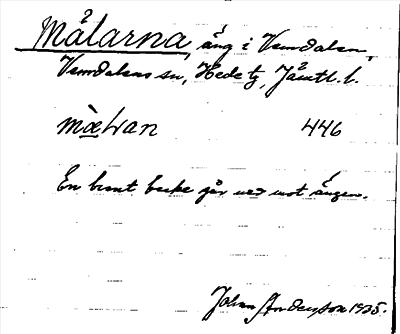 Målarna, äng i Vemdalen,
Vemdalens sn, Hede tg, Jämtl. l.
446
En brant backe går ned mot ängen.
Johan Anderson 1925.